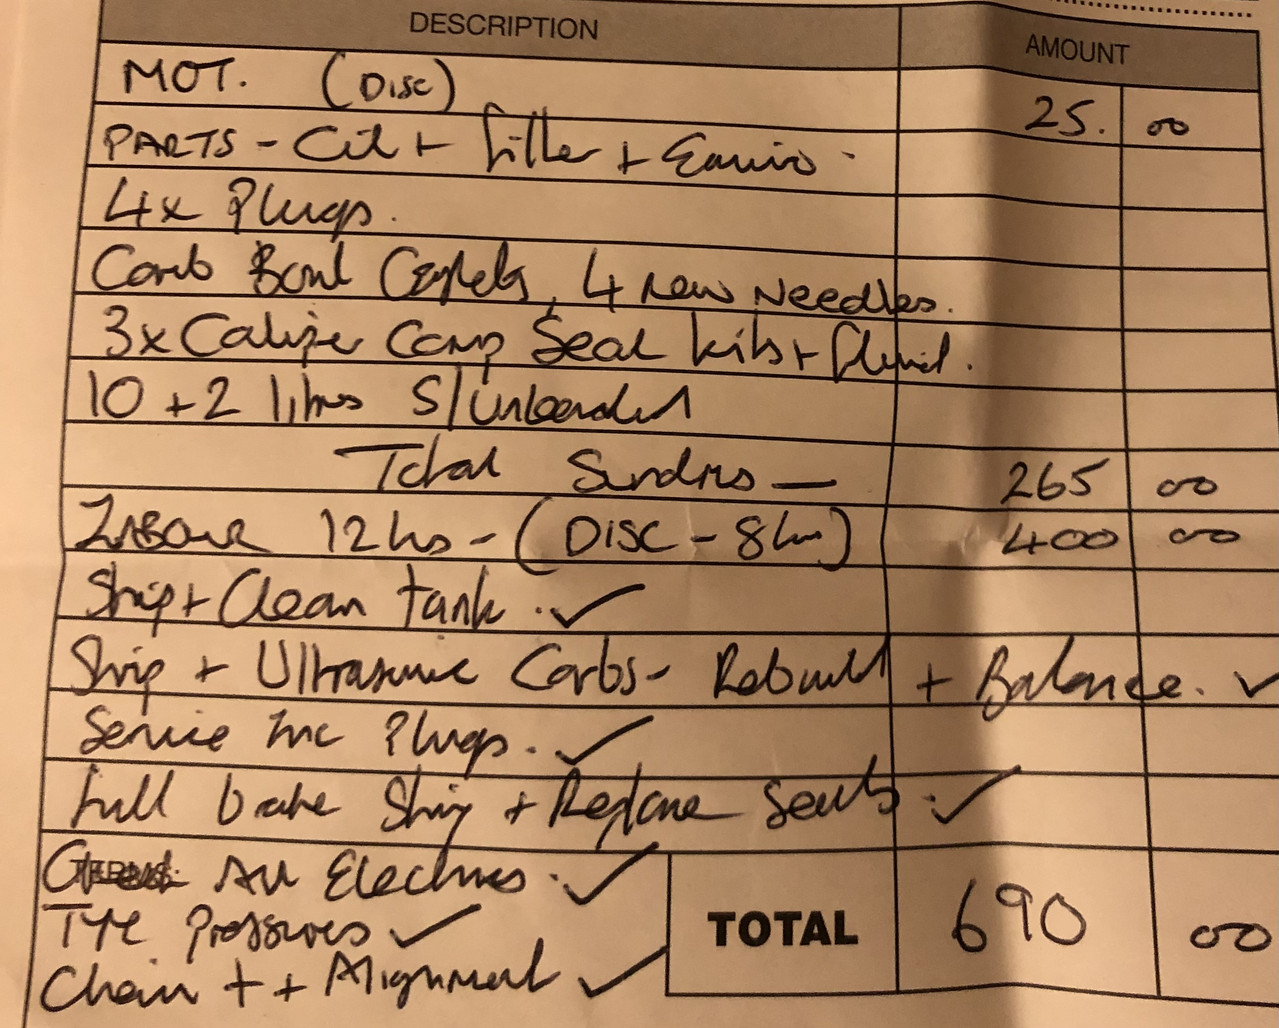 DESCRIPTION AMOUNT
MOT. (Disc) 25. 00
PARTS - Oil + filter + Enviro.
4x Plugs.
Carb Bowl Gaskets, 4 new Needles.
3x Caliper Comp Seal kits + fluid.
10 + 2 litres S/Unleaded
Total Sundries — 265 00
LABOUR 12hs - (DISC - 8hrs) 400 00
Strip + Clean tank. ✓
Strip + Ultrasonic Carbs - Rebuild + Balance. ✓
Service Inc Plugs. ✓
Full brake Strip + Replace Seals. ✓
All Electrics. ✓
Tyre Pressures ✓
Chain + + Alignment ✓
TOTAL 690 00